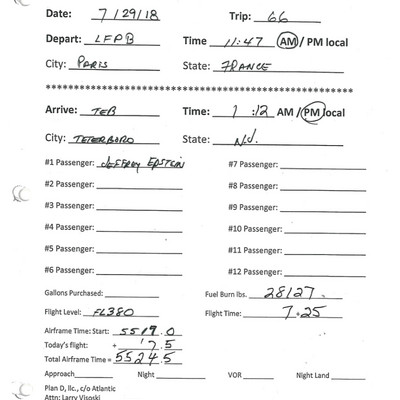 Date: 7/29/18 Trip: 66
Depart: LFPB Time 11:47 AM / PM local
City: PARIS State: FRANCE
****************************************
Arrive: TEB Time: 1:12 AM / PM local
City: TETERBORO State: N.J.
#1 Passenger: JEFFREY EPSTEIN #7 Passenger:
#2 Passenger: #8 Passenger:
#3 Passenger: #9 Passenger:
#4 Passenger: #10 Passenger:
#5 Passenger: #11 Passenger:
#6 Passenger: #12 Passenger:
Gallons Purchased: Fuel Burn lbs. 28127.
Flight Level: FL380 Flight Time: 7.25
Airframe Time: Start: 5517.0
Today's flight: + 7.5
Total Airframe Time= 5524.5
Approach Night VOR Night Land
Plan D, llc, c/o Atlantic
Attn: Larry Visoski